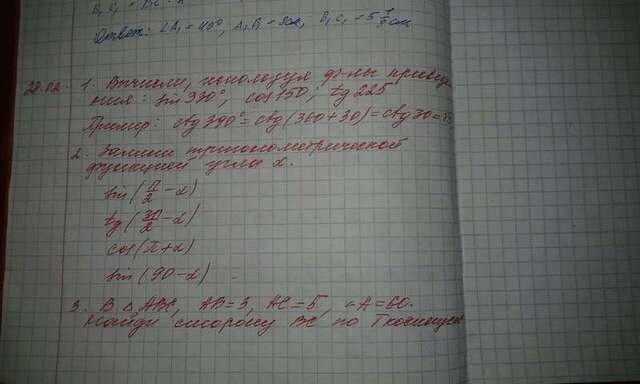 B₁C₁ = BC ·
Ответ: ∠A₁ = 40°, A₁B = 8см, B₁C₁ = 5 см
28.02. 1. Вычисли, используя ф-лы приведе
ния: sin 330°, cos 150; tg 225
Пример: ctg 390° = ctg (360 + 30) = ctg 30 = √3
2. Запиши тригонометрической
функцией угла α.
sin (π/2 - α)
tg (3π/2 - α)
cos (π + α)
sin (90 - α)
3. В △ ABC, AB = 3, AC = 5, ∠A = 60.
Найди сторону BC по Т косинусов